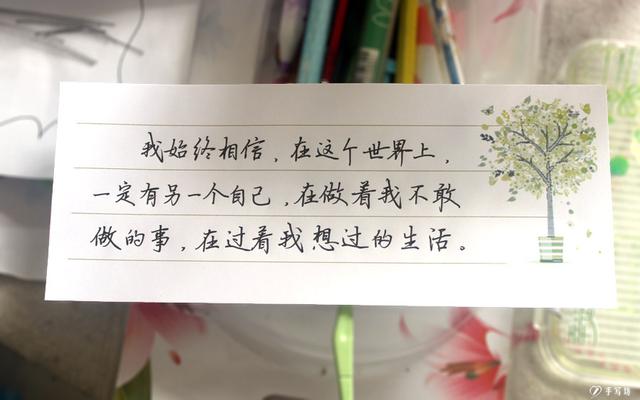 我始终相信，在这个世界上，
一定有另一个自己，在做着我不敢
做的事，在过着我想过的生活。
手写坊